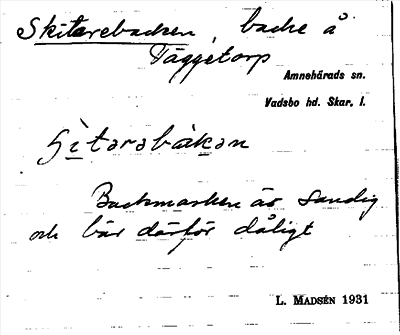 Skitarebacken, backe å
Väggetorp
Amnehärads sn.
Vadsbo hd. Skar. l.
ʃìtarabàkan
Backmarken är sandig
och bär därför dåligt
L. MADSÉN 1931